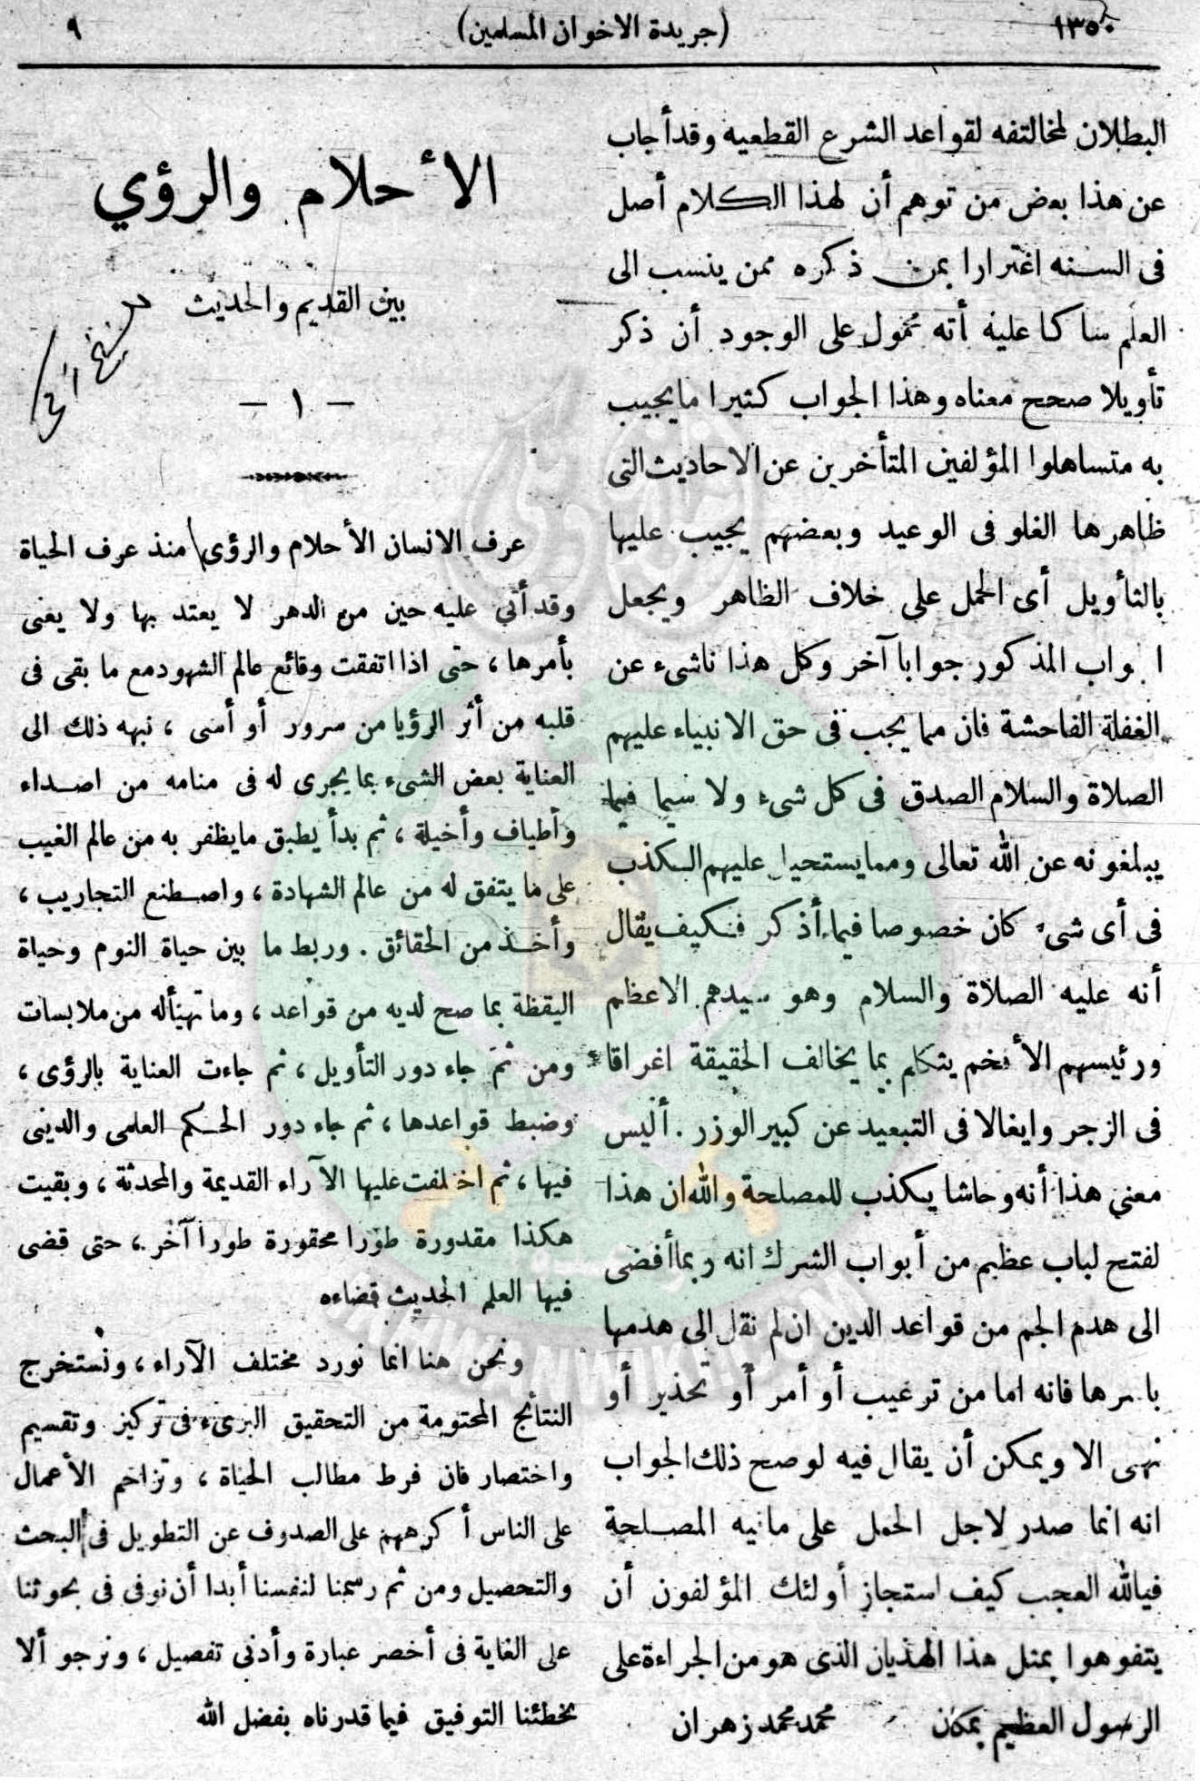 ١٣٥٠
(جريدة الاخوان المسلمين)
٩
البطلان لمخالتفه لقواعد الشرع القطعيه وقد أجاب
عن هذا بعض من توهم أن لهذا الكلام أصل
فى السنه اغترارا بمن ذكره ممن ينسب الى
العلم ساكتا عليه أنه محمول على الوجود أن ذكر
تأويلا صحح معناه وهذا الجواب كثيرا ما يجيب
به متساهلوا المؤلفين المتأخرين عن الاحاديث التى
ظاهرها الغلو فى الوعيد وبعضهم يجيب عليها
بالتأويل أى الحمل على خلاف الظاهر ويجعل
الجواب المذكور جوابا آخر وكل هذا ناشىء عن
الغفلة الفاحشة فان مما يجب فى حق الانبياء عليهم
الصلاة والسلام الصدق فى كل شىء ولا سيما فيما
يبلغونه عن الله تعالى ومما يستحيل عليهم الكذب
فى أى شىء كان خصوصا فيما أذكر فكيف يقال
أنه عليه الصلاة والسلام وهو سيدهم الاعظم
ورئيسهم الأفخم يتكلم بما يخالف الحقيقة اغراقا
فى الزجر وايغالا فى التبعيد عن كبير الوزر . أليس
معنى هذا أنه وحاشا يكذب للمصلحة والله ان هذا
لفتح لباب عظيم من أبواب الشرك انه ربما أفضى
الى هدم الجم من قواعد الدين ان لم نقل الى هدمها
بأسرها فانه اما من ترغيب أو أمر أو تحذير أو
نهى الا ويمكن أن يقال فيه لو صح ذلك الجواب
انه انما صدر لاجل الحمل على مافيه المصلحة
فيالله العجب كيف استجاز أولئك المؤلفون أن
يتفوهوا بمثل هذا الهذيان الذى هو من الجراءة على
الرسول العظيم بمكان محمد محمد زهران
الأحلام والرؤي
بين القديم والحديث
– ١ –
عرف الانسان الأحلام والرؤى منذ عرف الحياة
وقد أتي عليه حين من الدهر لا يعتد بها ولا يعنى
بأمرها ، حتى اذا اتفقت وقائع عالم الشهود مع ما بقى فى
قلبه من أثر الرؤيا من سرور أو أسى ، نبهه ذلك الى
العناية بعض الشىء بما يجرى له فى منامه من اصداء
وأطياف وأخيلة ، ثم بدأ يطبق ما يظفر به من عالم الغيب
على ما يتفق له من عالم الشهادة ، واصطنع التجاريب ،
وأخذ من الحقائق . وربط ما بين حياة النوم وحياة
اليقظة بما صح لديه من قواعد ، وما تهيأ له من ملابسات
ومن ثم جاء دور التأويل ، ثم جاءت العناية بالرؤى ،
وضبط قواعدها ، ثم جاء دور الحكم العلمى والدينى
فيها ، ثم اختلفت عليها الآراء القديمة والمحدثة ، وبقيت
هكذا مقدورة طورا محقورة طورا آخر ، حتى قضى
فيها العلم الحديث قضاءه
ونحن هنا انما نورد مختلف الآراء ، ونستخرج
النتائج المحتومة من التحقيق البرىء فى تركيز وتقسيم
واختصار فان فرط مطالب الحياة ، وتزاحم الأعمال
على الناس أكرههم على الصدوف عن التطويل فى البحث
والتحصيل ومن ثم رسمنا لنفسنا أبدا أن نوفى فى بحوثنا
على الغاية فى أخصر عبارة وأدنى تفصيل ، ونرجو ألا
يخطئنا التوفيق فيما قدرناه بفضل الله